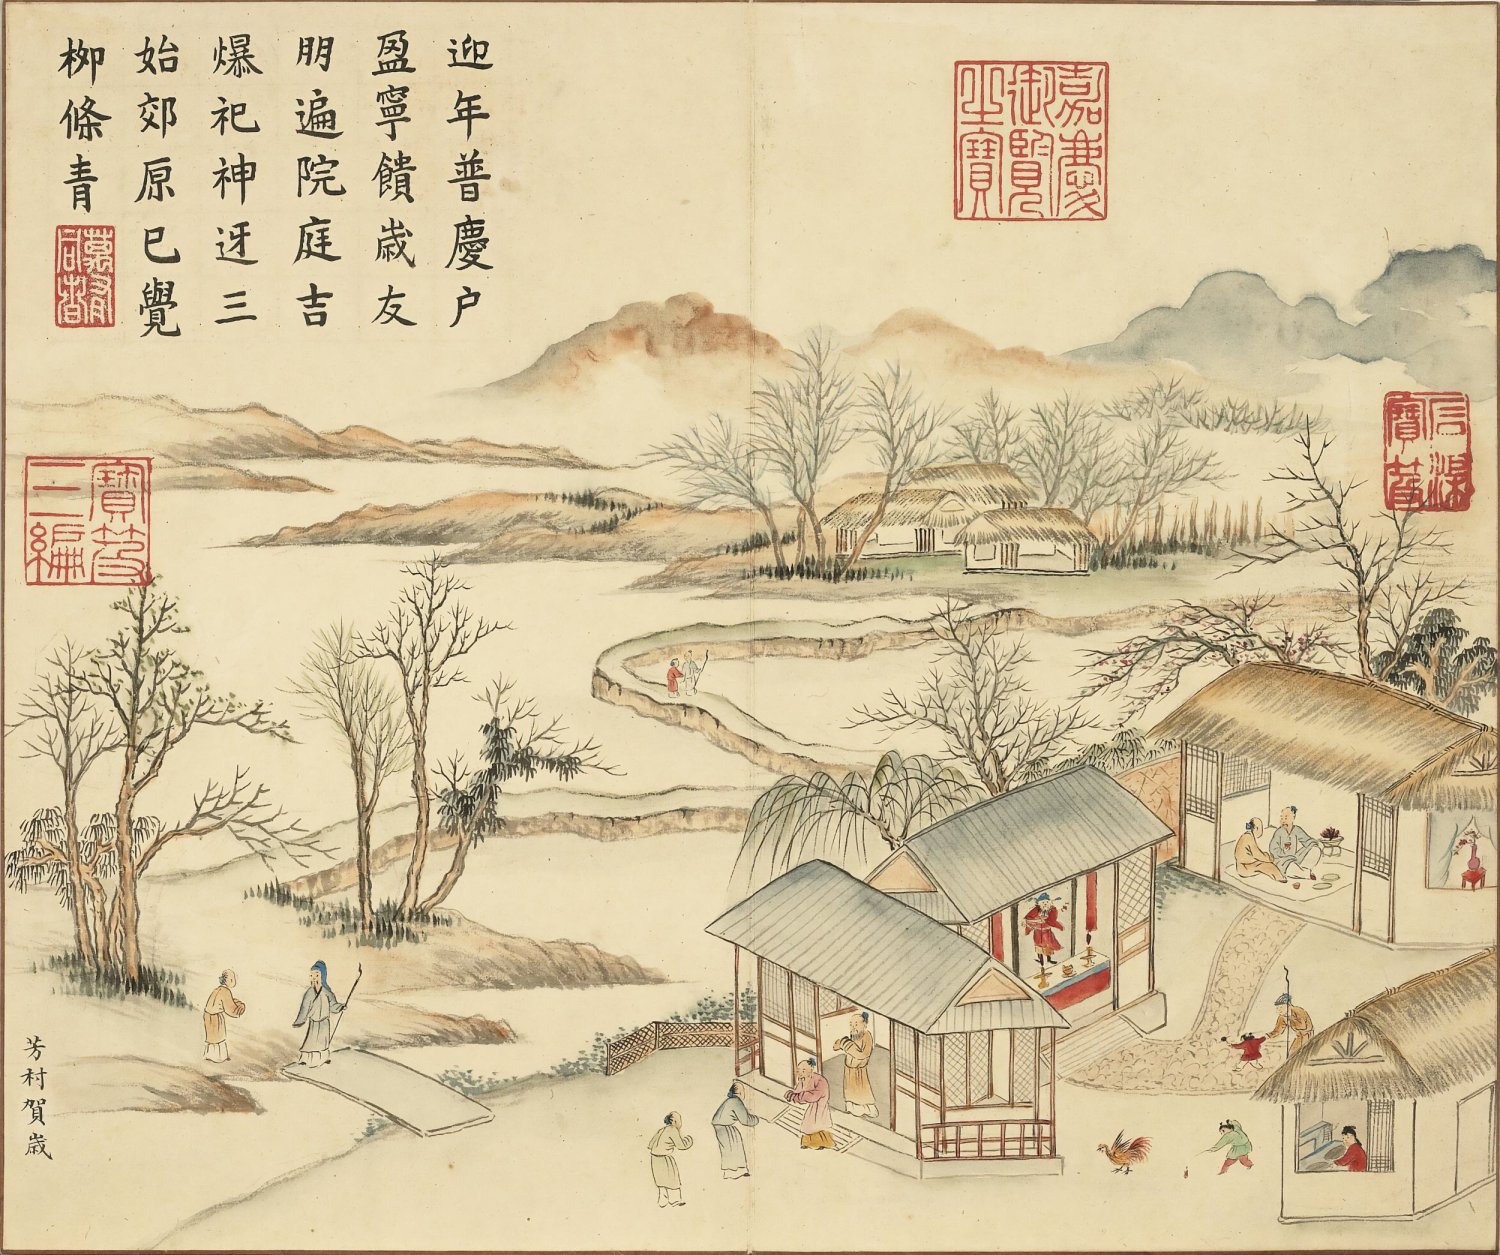 迎年普慶户
盈寧饋歳友
朋遍院庭吉
爆祀神迓三
始郊原巳覺
栁條青
嘉慶
御覽
之寶
石渠
寶笈
寶笈
三編
芳村賀歳